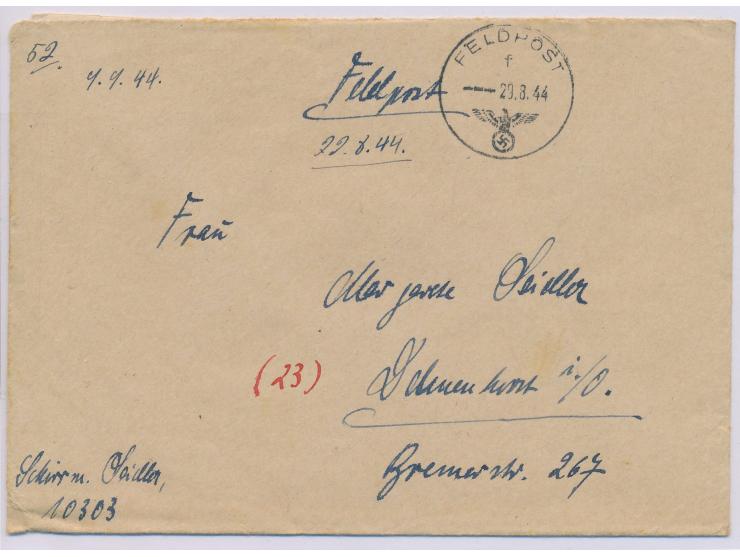 52.
9.9.44.
Feldpost
22.8.44.
FELDPOST
f
--- 29.8.44
Frau
Margarete Seidler
(23) Delmenhorst i./O.
Bremerstr. 267
Schirrm. Seidler,
10303